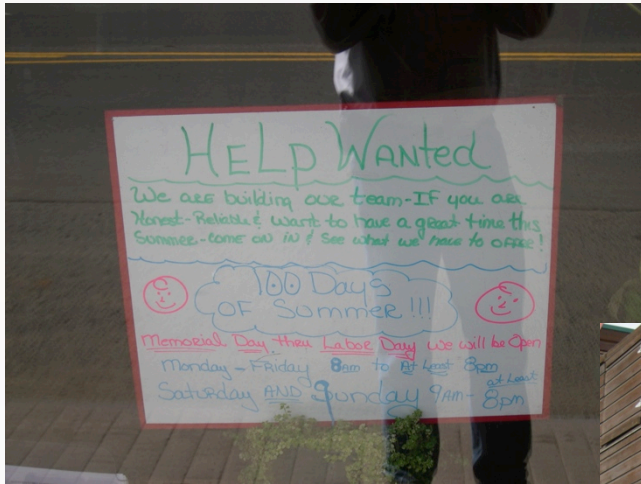 HeLp WANted
We are building our team-IF you are
Honest-Reliable & want to have a great time this
Summer-come on in & See what we have to offer!
100 Days
OF Summer!!!
Memorial Day thru Labor Day we will be Open
Monday-Friday 8am to At Least 8pm
Saturday AND Sunday 9Am- at Least 8pm